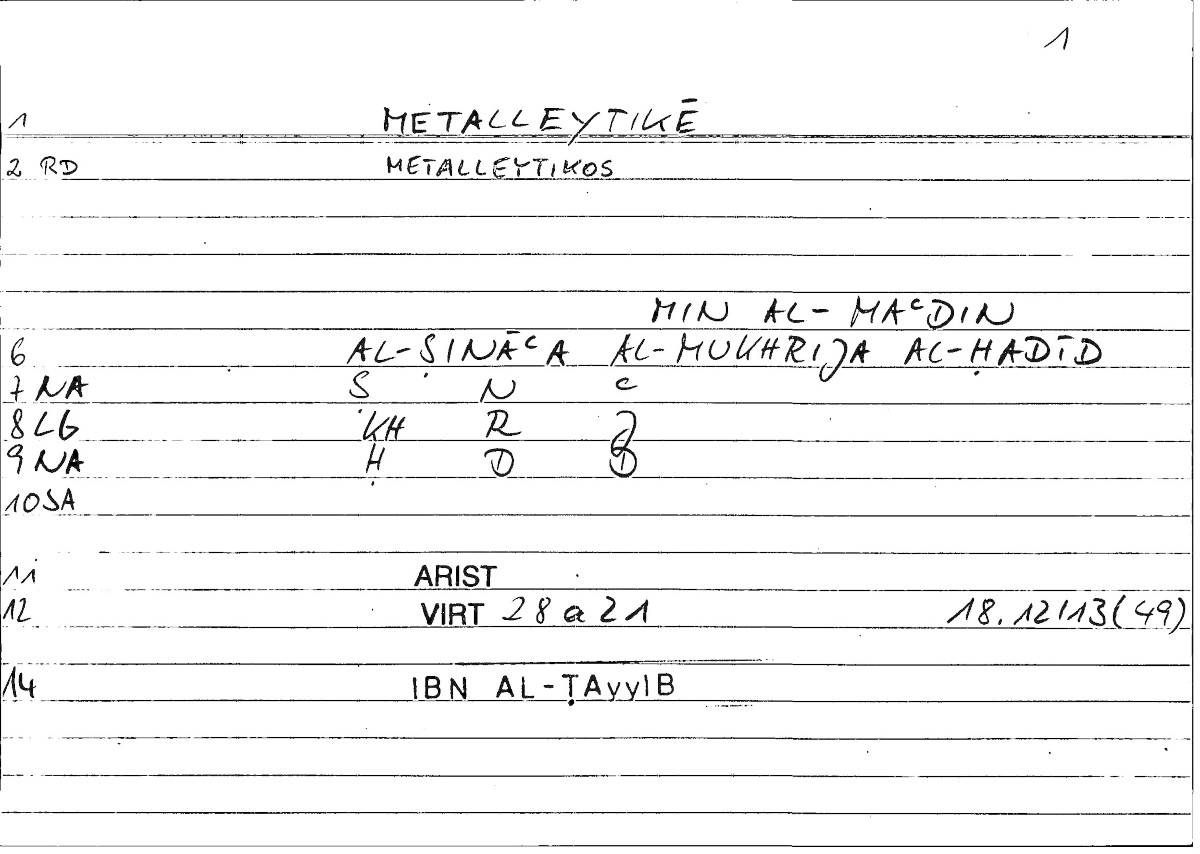 1
1 METALLEYTIKĒ
2 RD METALLEYTIKOS
MIN AL-MAᶜDIN
6 AL-ṢINĀᶜA AL-MUKHRIJA AL-ḤADĪD
7 NA Ṣ N ᶜ
8 LG KH R J
9 NA Ḥ D D
10 SA
11 ARIST
12 VIRT 28 a 21 18.12/13(49)
14 IBN AL-ṬAyyIB